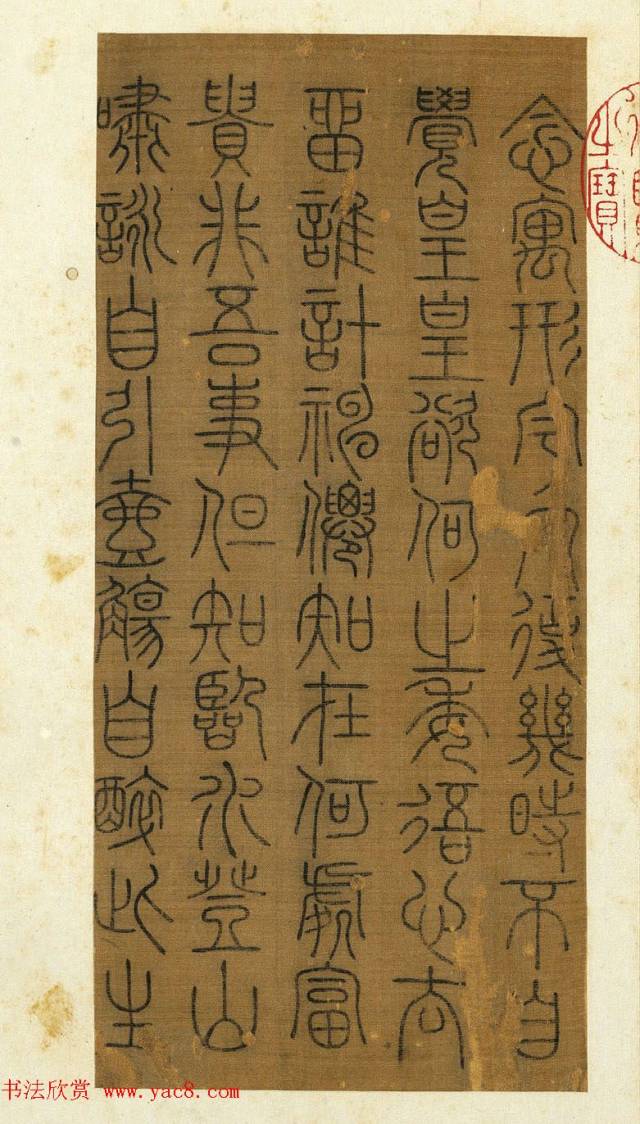 念寓形宇内復幾時不自
覺皇皇欲何之委吾心去
留誰計神僊知在何處富
貴非吾事但知臨水登山
嘯詠自引壺觴自醉此生
之寶
书法欣赏 www.yac8.com